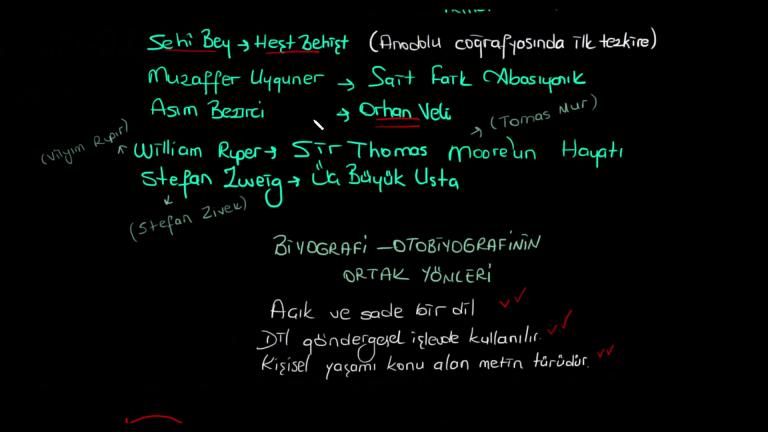 Sehi Bey → Heşt Behişt (Anadolu coğrafyasında ilk tezkire)
Muzaffer Uyguner → Sait Faik Abasıyanık
Asım Bezirci → Orhan Veli
(Tomas Mur)
(Vilyım Rupır)
William Ruper → Sir Thomas Moore'un Hayatı
Stefan Zweig → Üç Büyük Usta
(Stefan Zivek)
BİYOGRAFİ – OTOBİYOGRAFİNİN
ORTAK YÖNLERİ
Açık ve sade bir dil
Dil göndergesel işlevde kullanılır.
Kişisel yaşamı konu alan metin türüdür.